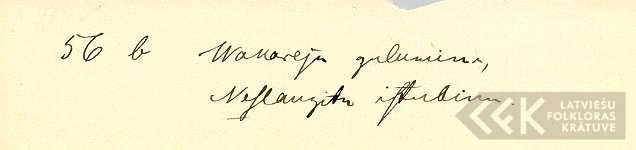 56 b Wakareju gulumiņu,
Neslaugītu istabiņu.
LATVIEŠU
FOLKLORAS
KRĀTUVE